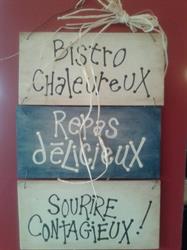 Bistro
CHALEUREUX
REPAS
dÉLICIEUX
SOURIRE
CONTAGIEUX !